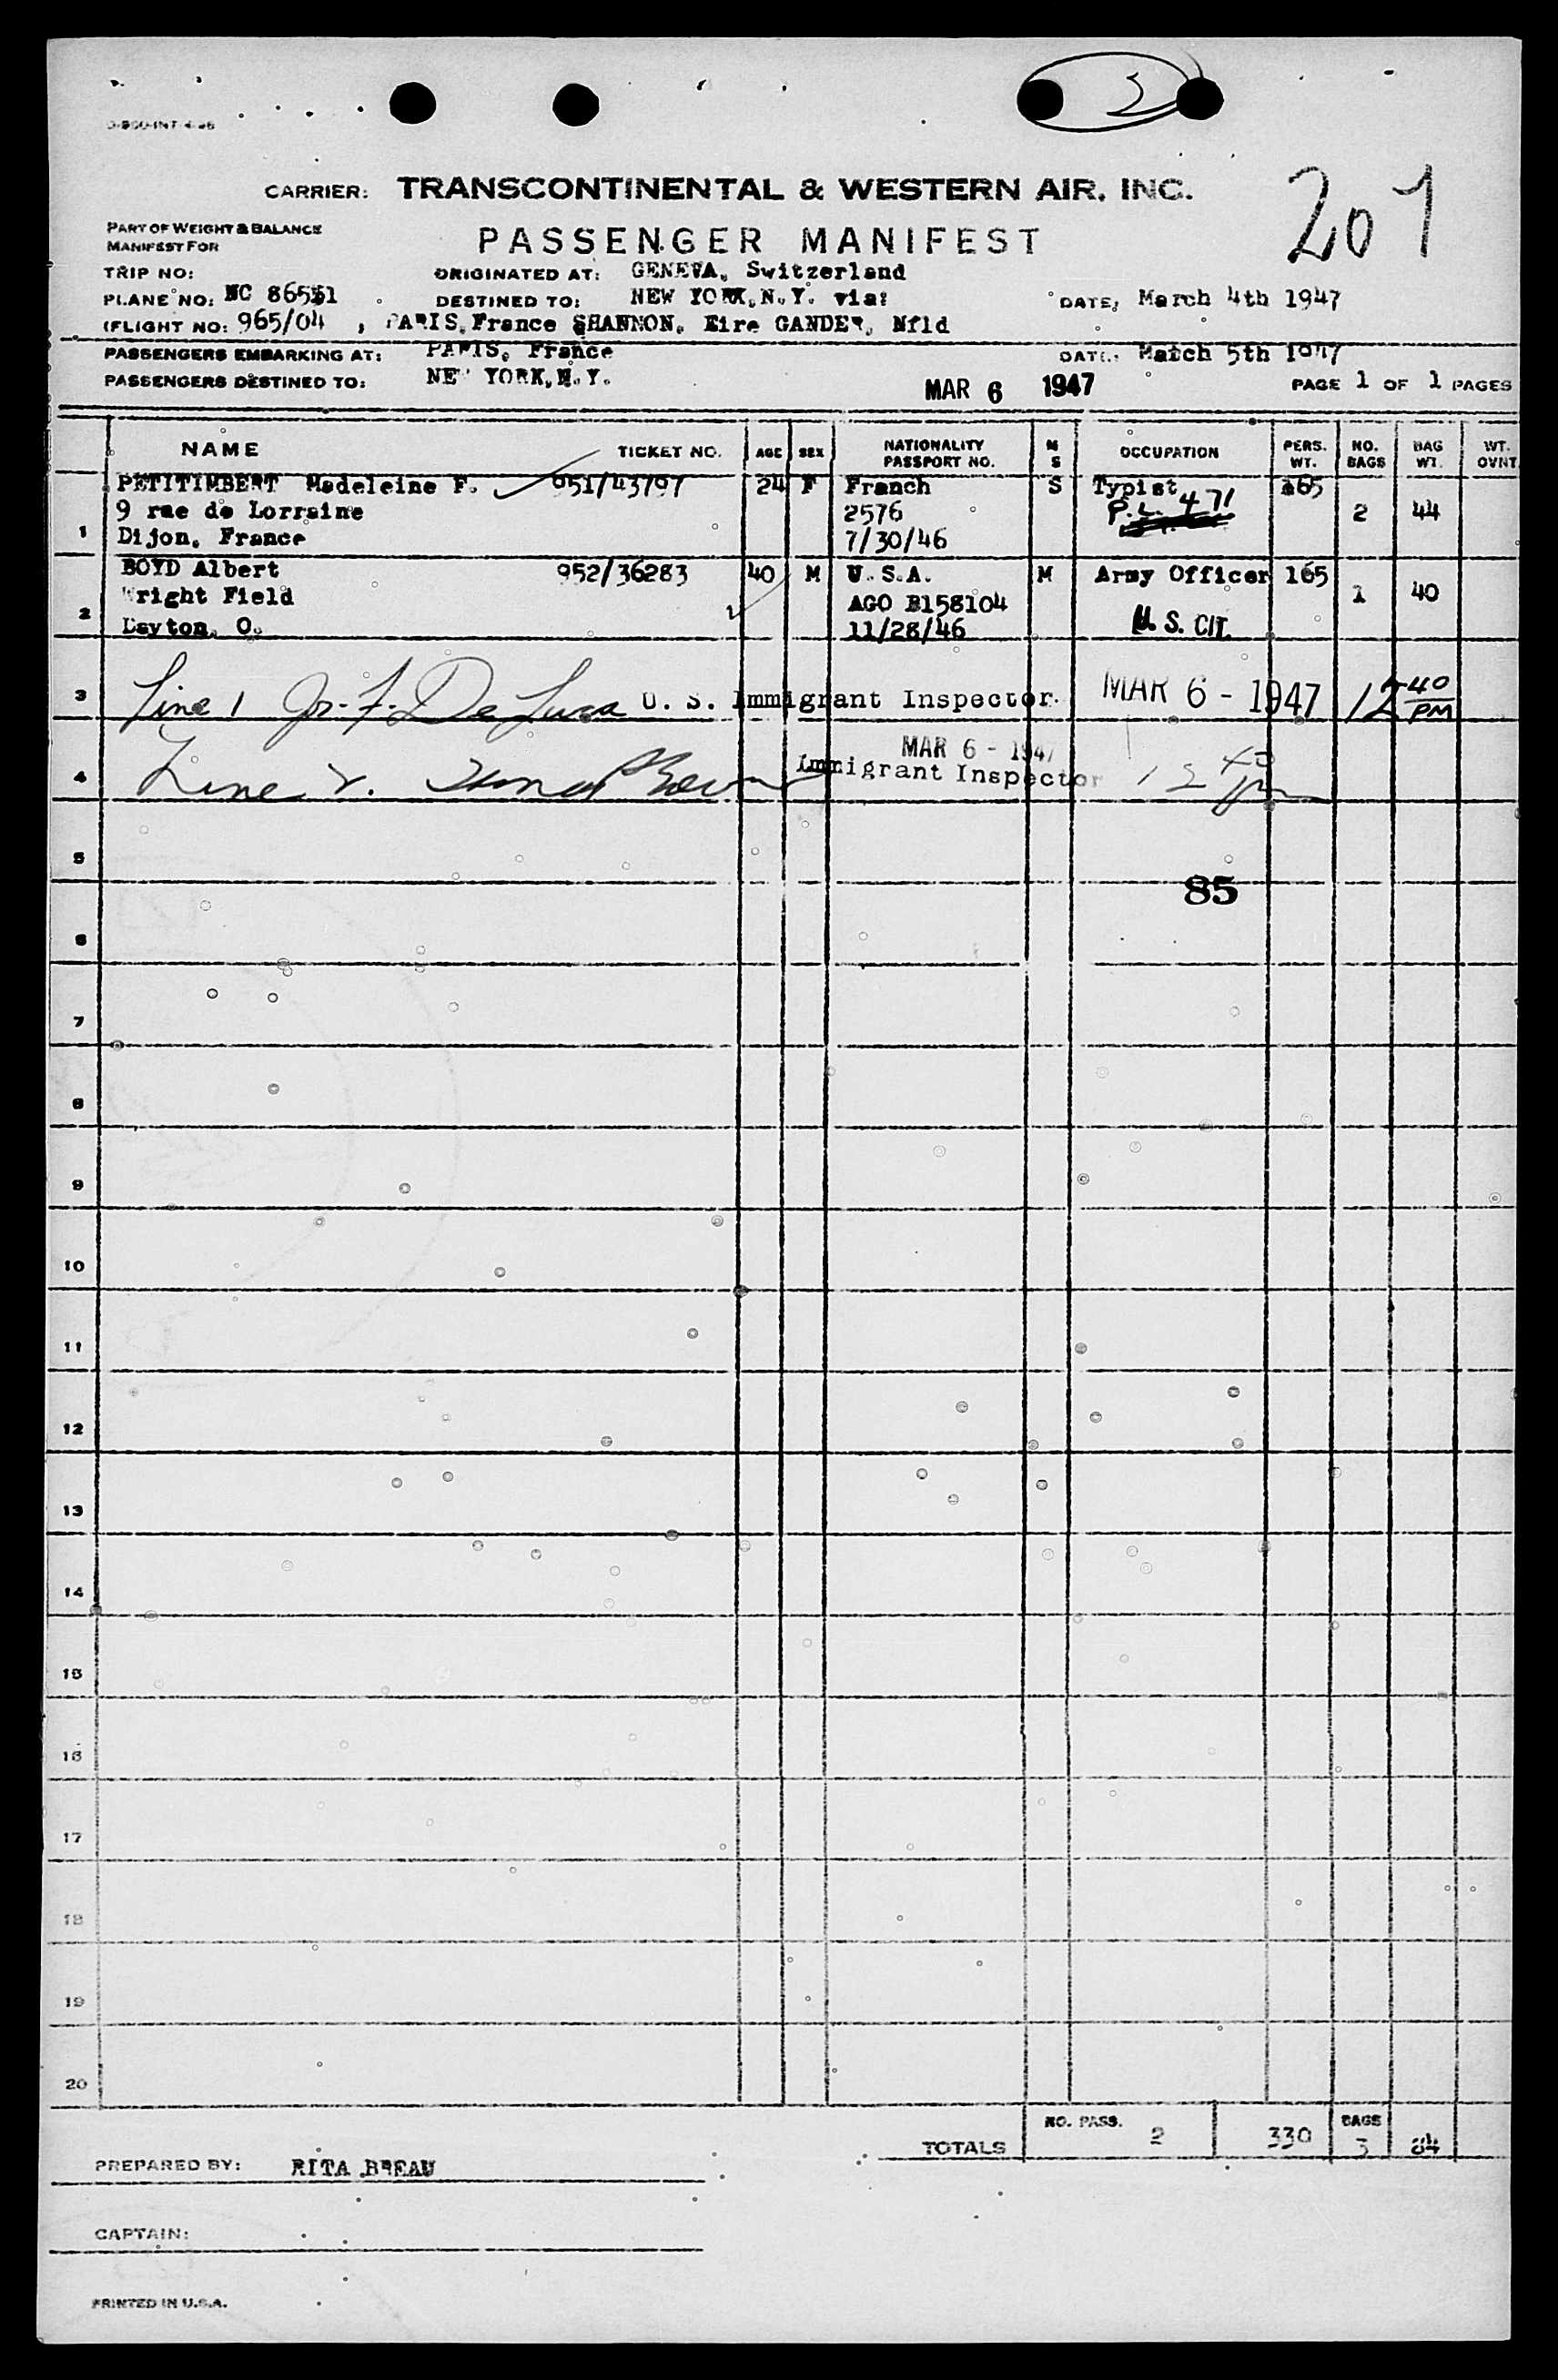 CARRIER: TRANSCONTINENTAL & WESTERN AIR, INC.
207
PART OF WEIGHT & BALANCE
MANIFEST FOR
PASSENGER MANIFEST
TRIP NO: ORIGINATED AT: GENEVA, Switzerland
PLANE NO: NC DESTINED TO: NEW YORK, N.Y. via: DATE: March 4th 1947
(FLIGHT NO: 965/04 , PARIS, France SHANNON, Eire GANDER, Nfld
PASSENGERS EMBARKING AT: PARIS, France DATE: March 5th 1947
PASSENGERS DESTINED TO: NEW YORK, N.Y. MAR 6 1947 PAGE 1 OF 1 PAGES
NAME TICKET NO. AGE SEX NATIONALITY PASSPORT NO. M S OCCUPATION PERS. WT. NO. BAGS BAG WT. WT. OVNT
1 PETITIMBERT Madeleine F. 951/43797 24 F French S Typist 165
9 rue de Lorraine 2576 P.L. 471 2 44
Dijon, France 7/30/46
2 BOYD Albert 952/36283 40 M U.S.A. M Army Officer 165
Wright Field AGO B158104 1 40
Dayton, O. 11/28/46 U.S. CIT.
3 Line 1 Jr. F. De Luca U. S. Immigrant Inspector MAR 6 - 1947 12 40 PM
4 Line 2. Immigrant Inspector MAR 6 - 1947 12 40 pm
5
85
6
7
8
9
10
11
12
13
14
15
16
17
18
19
20
TOTALS NO. PASS. 2 330 BAGS 3 84
PREPARED BY: RITA BREAU
CAPTAIN:
PRINTED IN U.S.A.